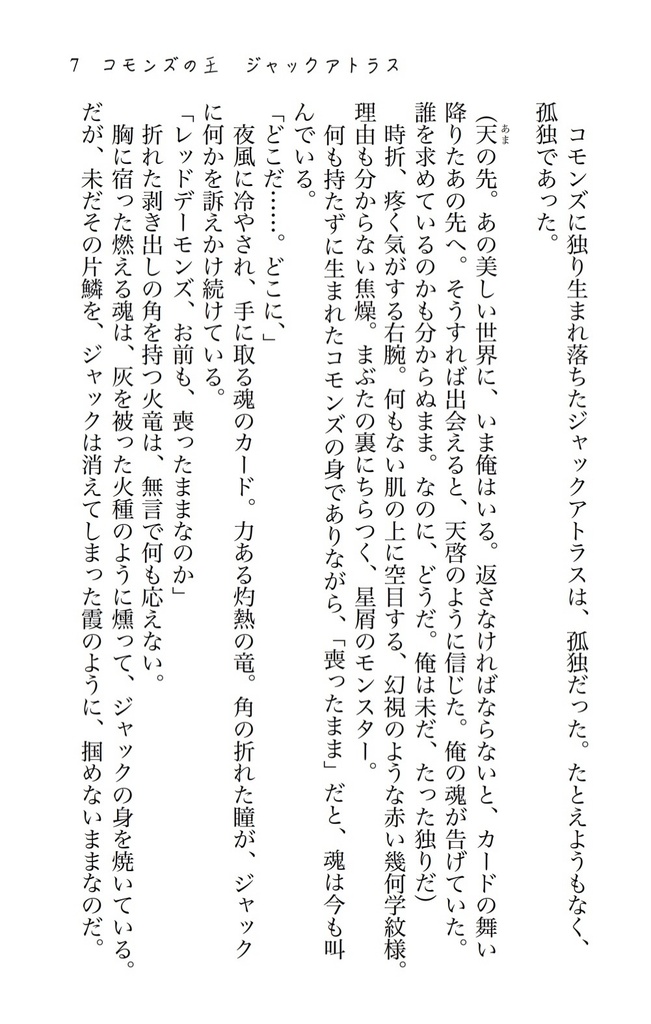 7 コモンズの王 ジャックアトラス
コモンズに独り生まれ落ちたジャックアトラスは、孤独だった。たとえようもなく、
孤独であった。
(天の先。あの美しい世界に、いま俺はいる。返さなければならないと、カードの舞い
あま
降りたあの先へ。そうすれば出会えると、天啓のように信じた。俺の魂が告げていた。
誰を求めているのかも分からぬまま。なのに、どうだ。俺は未だ、たった独りだ)
時折、疼く気がする右腕。何もない肌の上に空目する、幻視のような赤い幾何学紋様。
理由も分からない焦燥。まぶたの裏にちらつく、星屑のモンスター。
何も持たずに生まれたコモンズの身でありながら、「喪ったまま」だと、魂は今も叫
んでいる。
「どこだ……。どこに、」
夜風に冷やされ、手に取る魂のカード。力ある灼熱の竜。角の折れた瞳が、ジャック
に何かを訴えかけ続けている。
「レッドデーモンズ、お前も、喪ったままなのか」
折れた剥き出しの角を持つ火竜は、無言で何も応えない。
胸に宿った燃える魂は、灰を被った火種のように燻って、ジャックの身を焼いている。
だが、未だその片鱗を、ジャックは消えてしまった霞のように、掴めないままなのだ。